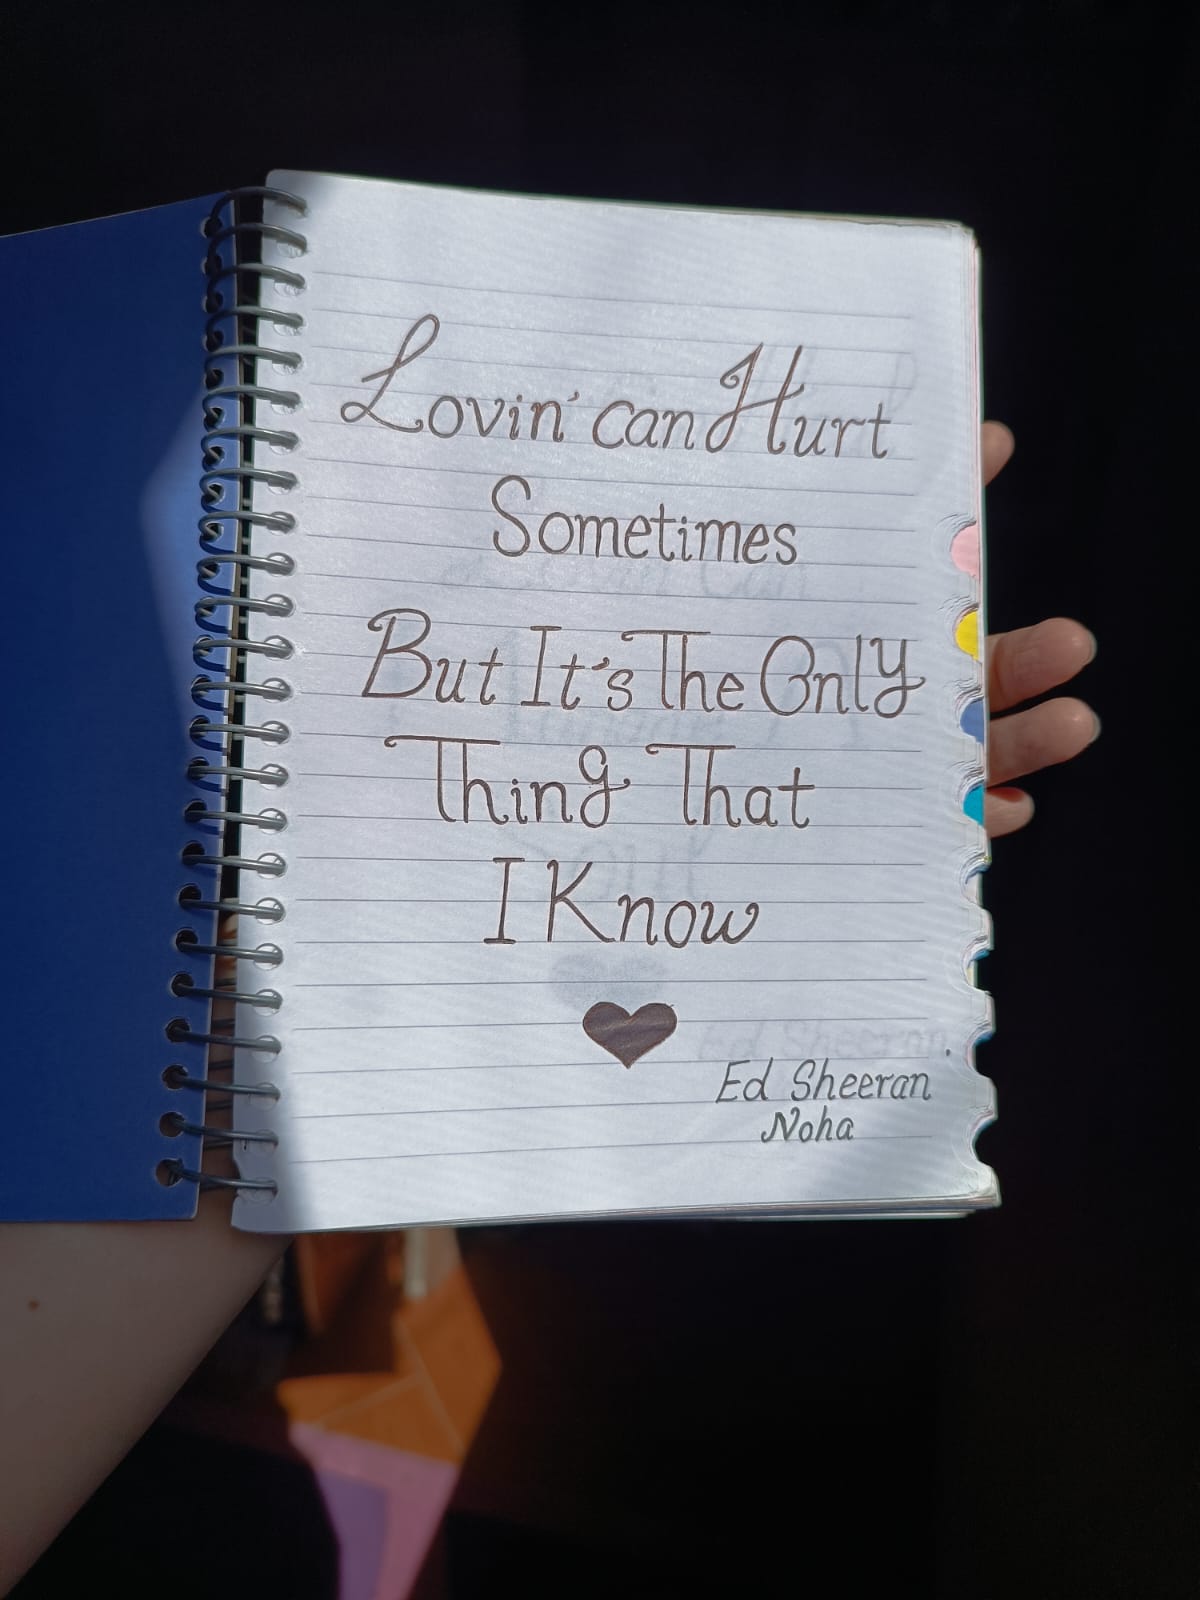 Lovin' can Hurt
Sometimes
But It's The Only
Thing That
I Know
Ed Sheeran
Noha